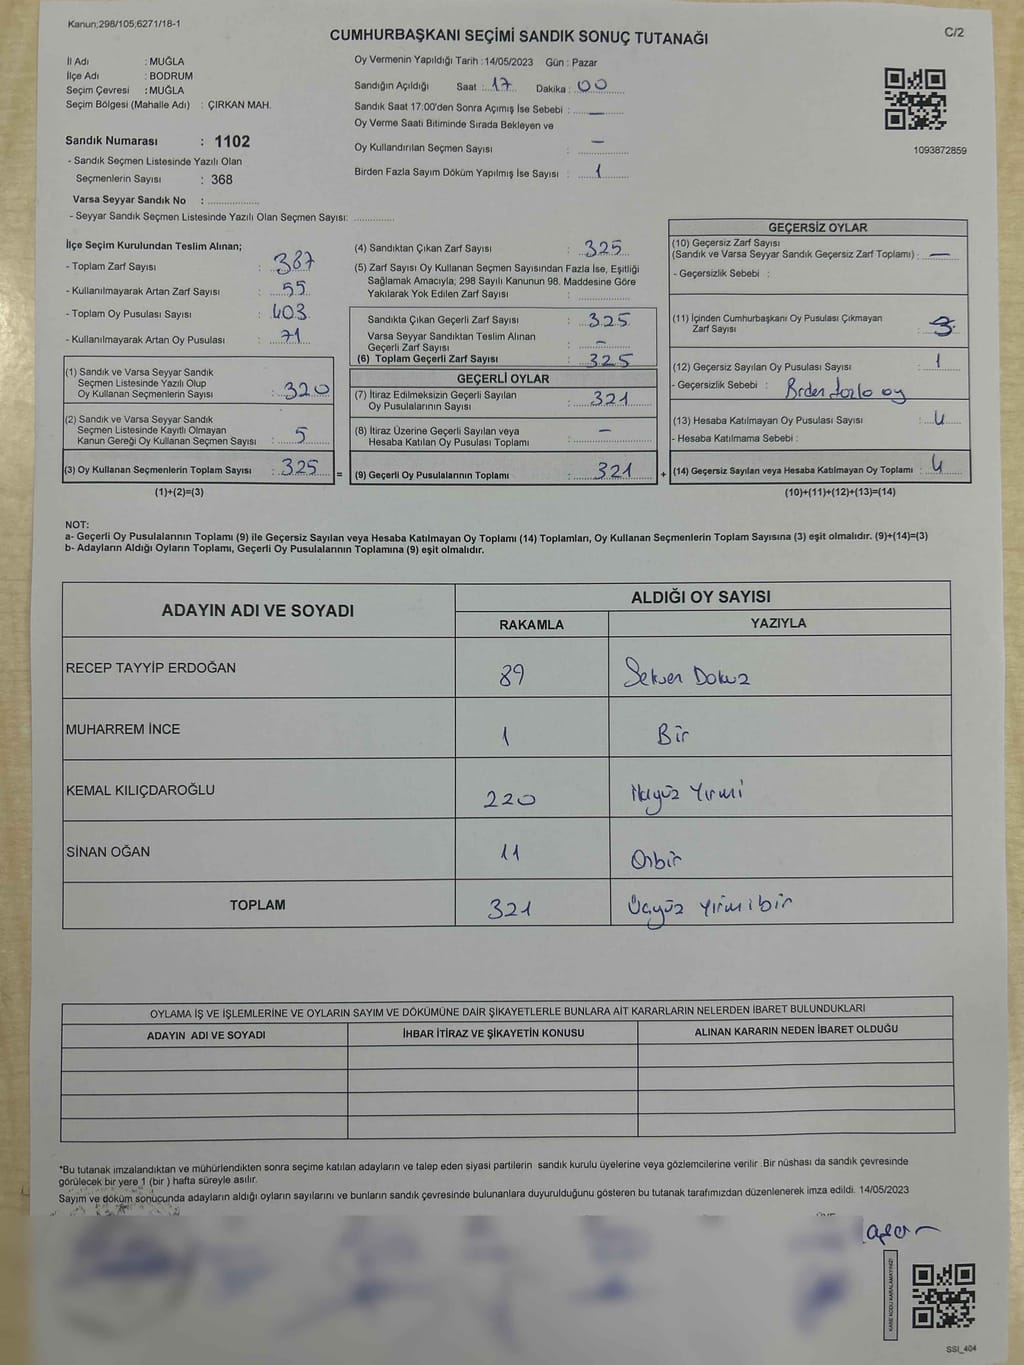 Kanun;298/105;6271/18-1
C/2
CUMHURBAŞKANI SEÇİMİ SANDIK SONUÇ TUTANAĞI
İl Adı : MUĞLA
İlçe Adı : BODRUM
Seçim Çevresi : MUĞLA
Seçim Bölgesi (Mahalle Adı) : ÇIRKAN MAH.
Sandık Numarası : 1102
- Sandık Seçmen Listesinde Yazılı Olan
Seçmenlerin Sayısı : 368
Varsa Seyyar Sandık No : ................
- Seyyar Sandık Seçmen Listesinde Yazılı Olan Seçmen Sayısı: .............
Oy Vermenin Yapıldığı Tarih :14/05/2023 Gün : Pazar
Sandığın Açıldığı Saat : 17 Dakika : 00
Sandık Saat 17:00'den Sonra Açımış İse Sebebi : —
Oy Verme Saati Bitiminde Sırada Bekleyen ve
Oy Kullandırılan Seçmen Sayısı : —
Birden Fazla Sayım Döküm Yapılmış İse Sayısı : 1
1093872859
İlçe Seçim Kurulundan Teslim Alınan;
- Toplam Zarf Sayısı : 387
- Kullanılmayarak Artan Zarf Sayısı : 55
- Toplam Oy Pusulası Sayısı : 403
- Kullanılmayarak Artan Oy Pusulası : 71
(1) Sandık ve Varsa Seyyar Sandık
Seçmen Listesinde Yazılı Olup
Oy Kullanan Seçmenlerin Sayısı : 320
(2) Sandık ve Varsa Seyyar Sandık
Seçmen Listesinde Kayıtlı Olmayan
Kanun Gereği Oy Kullanan Seçmen Sayısı : 5
(3) Oy Kullanan Seçmenlerin Toplam Sayısı : 325 =
(1)+(2)=(3)
(4) Sandıktan Çıkan Zarf Sayısı : 325
(5) Zarf Sayısı Oy Kullanan Seçmen Sayısından Fazla İse, Eşitliği
Sağlamak Amacıyla; 298 Sayılı Kanunun 98. Maddesine Göre
Yakılarak Yok Edilen Zarf Sayısı : ................
Sandıkta Çıkan Geçerli Zarf Sayısı : 325
Varsa Seyyar Sandıktan Teslim Alınan
Geçerli Zarf Sayısı : —
(6) Toplam Geçerli Zarf Sayısı : 325
GEÇERLİ OYLAR
(7) İtiraz Edilmeksizin Geçerli Sayılan
Oy Pusulalarının Sayısı : 321
(8) İtiraz Üzerine Geçerli Sayılan veya
Hesaba Katılan Oy Pusulası Toplamı : —
(9) Geçerli Oy Pusulalarının Toplamı : 321 +
GEÇERSİZ OYLAR
(10) Geçersiz Zarf Sayısı
(Sandık ve Varsa Seyyar Sandık Geçersiz Zarf Toplamı) : —
- Geçersizlik Sebebi :
(11) İçinden Cumhurbaşkanı Oy Pusulası Çıkmayan
Zarf Sayısı : 3
(12) Geçersiz Sayılan Oy Pusulası Sayısı : 1
- Geçersizlik Sebebi : Birden fazla oy
(13) Hesaba Katılmayan Oy Pusulası Sayısı : 4
- Hesaba Katılmama Sebebi :
(14) Geçersiz Sayılan veya Hesaba Katılmayan Oy Toplamı : 4
(10)+(11)+(12)+(13)=(14)
NOT:
a- Geçerli Oy Pusulalarının Toplamı (9) ile Geçersiz Sayılan veya Hesaba Katılmayan Oy Toplamı (14) Toplamları, Oy Kullanan Seçmenlerin Toplam Sayısına (3) eşit olmalıdır. (9)+(14)=(3)
b- Adayların Aldığı Oyların Toplamı, Geçerli Oy Pusulalarının Toplamına (9) eşit olmalıdır.
ADAYIN ADI VE SOYADI ALDIĞI OY SAYISI
RAKAMLA YAZIYLA
RECEP TAYYİP ERDOĞAN 89 Seksen Dokuz
MUHARREM İNCE 1 Bir
KEMAL KILIÇDAROĞLU 220 İkiyüz Yirmi
SİNAN OĞAN 11 Onbir
TOPLAM 321 Üçyüz Yirmibir
OYLAMA İŞ VE İŞLEMLERİNE VE OYLARIN SAYIM VE DÖKÜMÜNE DAİR ŞİKAYETLERLE BUNLARA AİT KARARLARIN NELERDEN İBARET BULUNDUKLARI
ADAYIN ADI VE SOYADI İHBAR İTİRAZ VE ŞİKAYETİN KONUSU ALINAN KARARIN NEDEN İBARET OLDUĞU
*Bu tutanak imzalandıktan ve mühürlendikten sonra seçime katılan adayların ve talep eden siyasi partilerin sandık kurulu üyelerine veya gözlemcilerine verilir .Bir nüshası da sandık çevresinde
görülecek bir yere 1 (bir ) hafta süreyle asılır.
Sayım ve döküm sonucunda adayların aldığı oyların sayılarını ve bunların sandık çevresinde bulunanlara duyurulduğunu gösteren bu tutanak tarafımızdan düzenlenerek imza edildi. 14/05/2023
KARE KODU KARALAMAYINIZ!
SSI_404